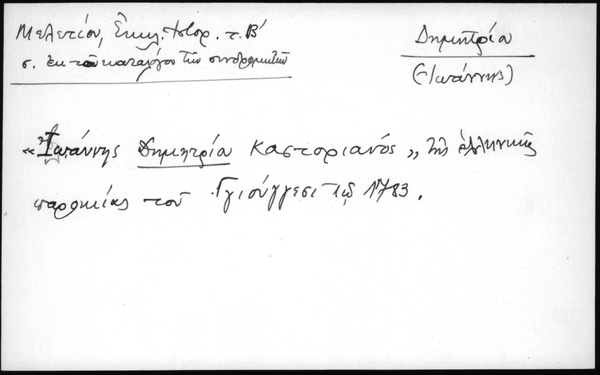 Μελετίου, Ἐκκλ. Ἱστορ. τ. Β'
σ. ἐκ τοῦ καταλόγου τῶν συνδρομητῶν
Δημητρία
(Ἰωάννης)
«Ἰωάννης Δημητρία Καστοριανός» τῆς ἑλληνικῆς
παροικίας τοῦ Γγιούγγεσι τῷ 1783.